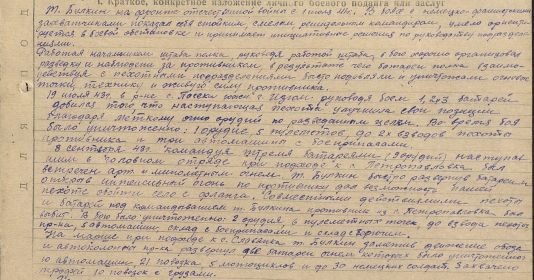 I. Краткое, конкретное изложение личного боевого подвига или заслуг
Т. Булкин на фронте отечественной войны с июня 41г. В боях с немецко-фашистскими
захватчиками показал себя стойким, смелым решительным командиром, умело ориенти-
руется в боевой обстановке и принимает инициативные решения по руководству подразделе-
ниями.
Работая начальником штаба полка руководя работой штаба, в бою хорошо организовал
разведку и наблюдение за противником, в результате чего батареи полка взаимо-
действуя с пехотными подразделениями быстро подавляли и уничтожали огневые
точки, технику и живую силу противника.
19 июля 43г. в р-не с. Пасеки южнее г. Изюм, руководя боем 1, 2 и 3 батарей
добился того, что наступающая пехота улучшила свои позиции
благодаря меткому огню орудий по разведанным целям. Во время боя
было уничтожено: 1 орудие, 5 пулеметов, до 2х взводов пехоты
противника и три автомашины с боеприпасами.
8 сентября 43г. командуя тремя батареями (9 орудий) наступав
шими в головном отряде при подходе к с. Петропавловка был
встречен арт. и минометным огнем. Т. Булкин быстро развернув батареи,
открыв интенсивный огонь по противнику дал возможность нашей
пехоте обойти село с фланга. Совместными действиями пехоты
и батарей под командованием т. Булкина противник из с. Петропавловка был
выбит. В бою было уничтожено: 2 орудия, 5 пулеметных точек до взвода пехоты
пр-ка, 6 автомашин, склад с боеприпасами и склад с горючим.
На марше при подходе к с. Славянка т. Булкин заметив движение обоза
и автоколонны пр-ка развернул две батареи огнем которых было уничтожено
10 автомашин, 21 повозка, 5 мотоциклов и до 30 немецких солдат. Захвачено
10 повозок с грузами.